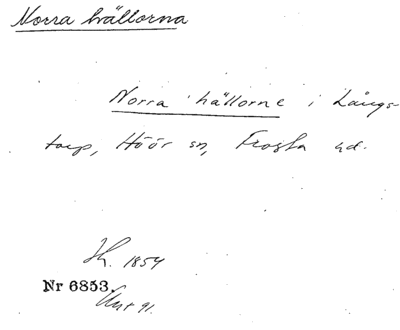 Norra hällorna
Norra hällorne i Långs-
torp, Höör sn, Frosta hd.
1854
Nr 6853.
91.